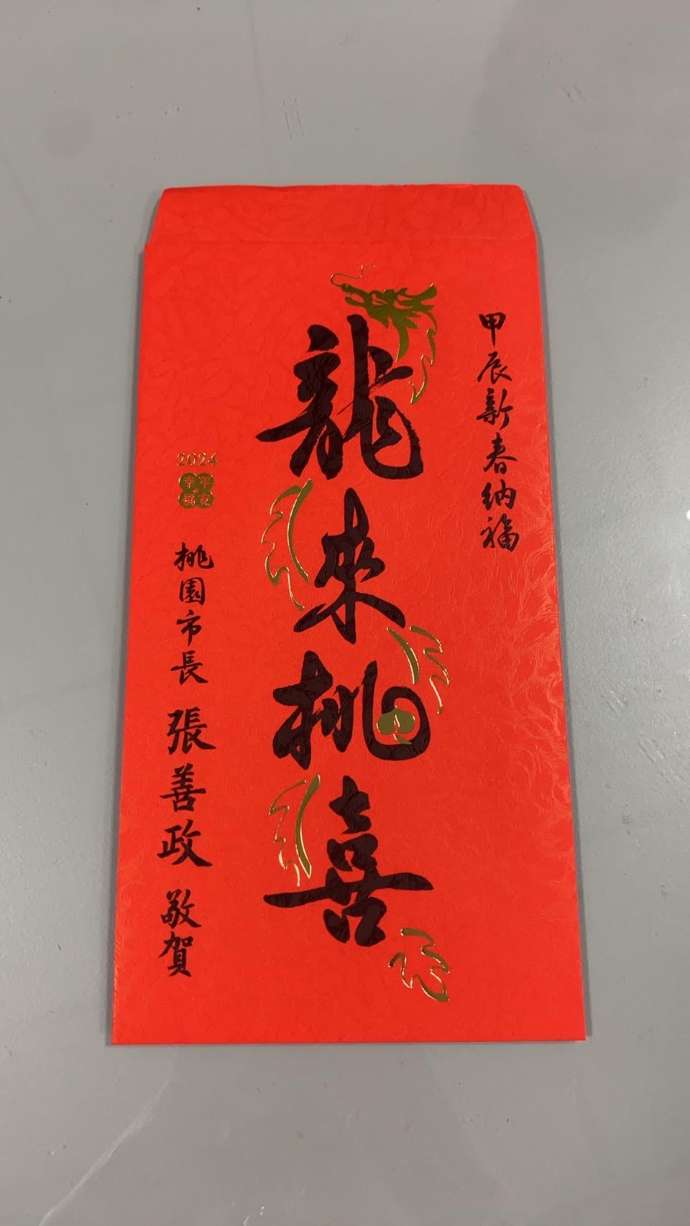 甲辰新春納福
龍來桃喜
2024
桃園市長 張善政 敬賀